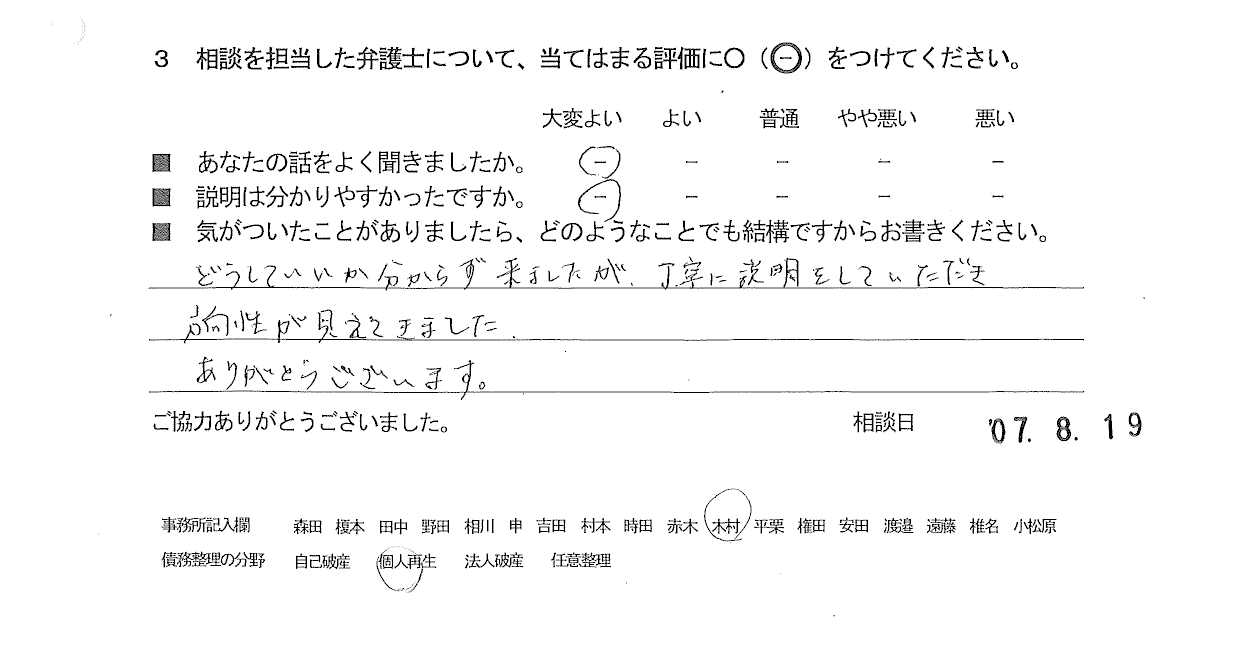 3 相談を担当した弁護士について、当てはまる評価に○（㊀）をつけてください。
大変よい よい 普通 やや悪い 悪い
■ あなたの話をよく聞きましたか。 － － － － －
■ 説明は分かりやすかったですか。 － － － － －
■ 気がついたことがありましたら、どのようなことでも結構ですからお書きください。
どうしていいか分からず来ましたが、丁寧に説明をしていただき
方向性が見えてきました.
ありがとうございます。
ご協力ありがとうございました。 相談日 '07. 8. 19
事務所記入欄 森田 榎本 田中 野田 相川 申 吉田 村本 時田 赤木 木村 平栗 権田 安田 渡邉 遠藤 椎名 小松原
債務整理の分野 自己破産 個人再生 法人破産 任意整理